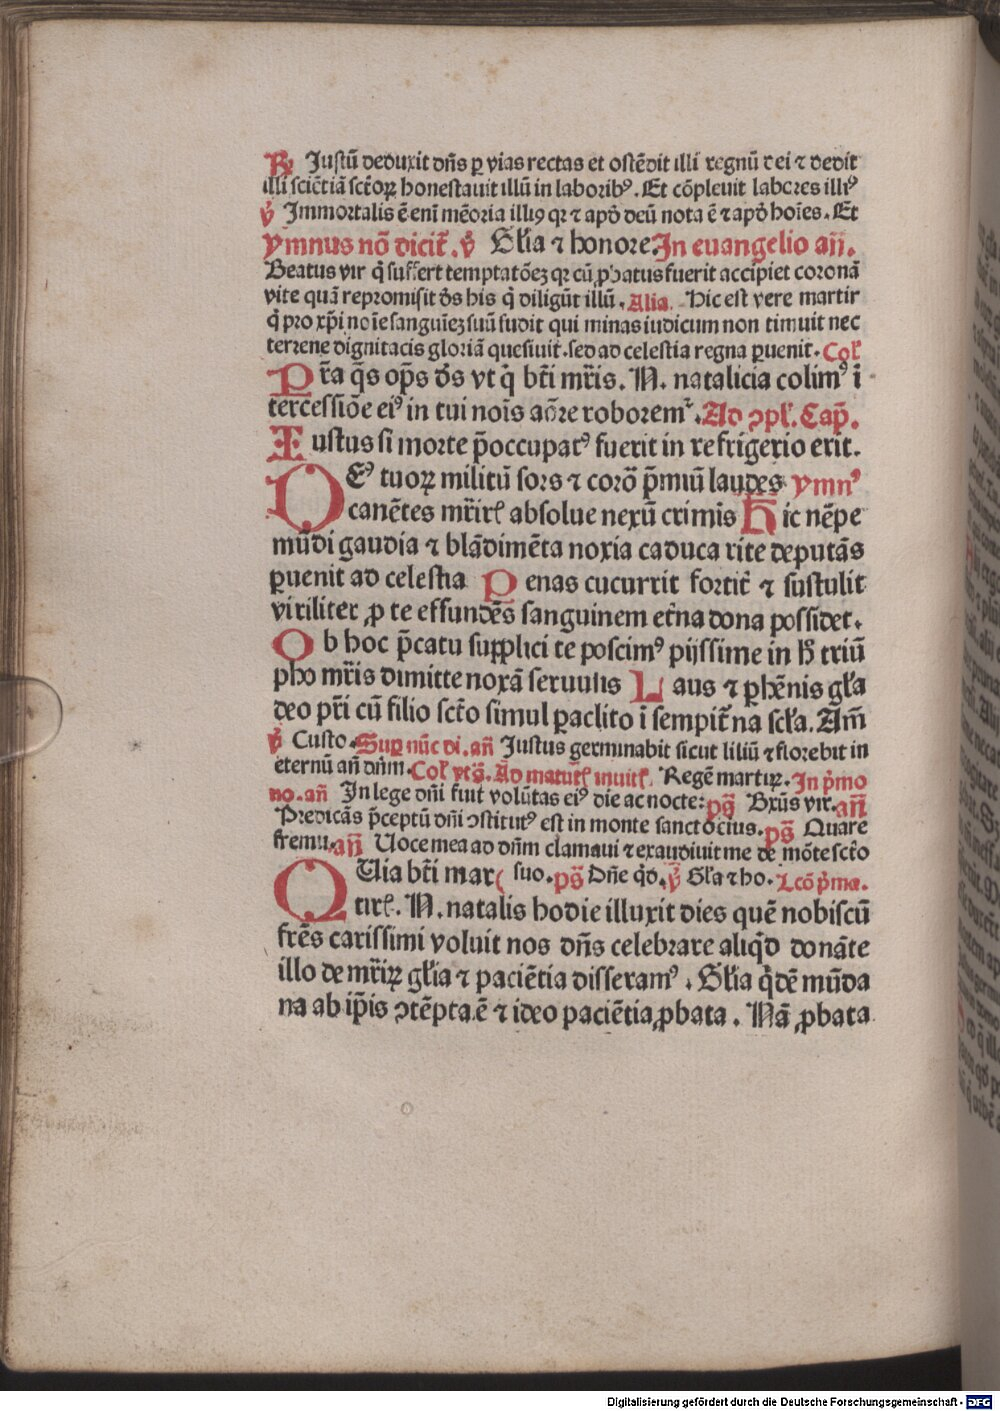 ℟ Justū deduxit dn̄s ꝑ vias rectas et ostēdit illi regnū dei ⁊ dedit
illi sciētiā sct̄oꝝ honestauit illū in laboribꝰ. Et cōpleuit labores illiꝰ
℣ Immortalis ē enī mēoria illiꝰ qꝛ ⁊ apd̓ deū nota ē ⁊ apd̓ hoīes. Et
ymnus nō dicit̄. ℣ Gl̓ia ⁊ honore In euangelio an̄.
Beatus vir q̓ suffert temptatōeꝫ qꝛ cū ꝓbatus fuerit accipiet coronā
vite quā repromisit ds̄ his q̓ diligūt illū. Alia. Hic est vere martir
q̓ pro xp̄i noīe sanguīeꝫ suū fudit qui minas iudicum non timuit nec
terrene dignitacis gloriā quesiuit. sed ad celestia regna ꝑuenit. Col̓
Pr̄a q̄s op̄s ds̄ vt q̓ bt̄i mr̄is. N. natalicia colimꝰ ī
tercessiōe eiꝰ in tui noīs aōre roboremᷣ. Ad ꝯpl̓. Cap̄.
Iustus si morte p̄occupatꝰ fuerit in refrigerio erit.
DEꝰ tuoꝝ militū sors ⁊ corō p̄miū laudes ymnꝰ
canētes mr̄irꝭ absolue nexū crimīs Hic nēpe
mūdi gaudia ⁊ blādimēta noxia caduca rite deputās
ꝑuenit ad celestia Penas cucurrit fortit̄ ⁊ sustulit
viriliter ꝓ te effundēs sanguinem et̄na dona possidet.
Ob hoc p̄catu supplici te poscimꝰ pijssime in h̄ triū
pho mr̄is dimitte noxā seruulis Laus ⁊ ꝑhēnis gl̓a
deo pr̄i cū filio sct̄o simul paclito ī sempit̄na scl̓a. Am̄
℣ Custo. Suꝑ nūc di. an̄ Justus germinabit sicut liliū ⁊ florebit in
eternū an̄ dn̄m. Col̓ vts̄. Ad matutꝭ inuitꝭ. Regē martiꝝ. In p̓mo
no. an̄ In lege dn̄i fuit volūtas eiꝰ die ac nocte: ps̄ Bt̄us vir. an̄
Predicās p̄ceptū dn̄i ꝯstitutꝰ est in monte sancto eius. ps̄ Quare
fremu. an̄ Uoce mea ad dn̄m clamaui ⁊ exaudiuit me de mōte sct̄o
QUia bt̄i mar ( suo. ps̄ Dn̄e qd̓. ℣ Gl̓a ⁊ ho. Lcō p̓ma.
tirꝭ. N. natalis hodie illuxit dies quē nobiscū
frēs carissimi voluit nos dn̄s celebrare aliqd̓ donāte
illo de mr̄iꝝ gl̓ia ⁊ paciētia disseramꝰ. Gl̓ia qd̓ē mūda
na ab ip̄is ꝯtēpta ē ⁊ ideo paciētia ꝓbata. Nā ꝓbata
Digitalisierung gefördert durch die Deutsche Forschungsgemeinschaft - DFG